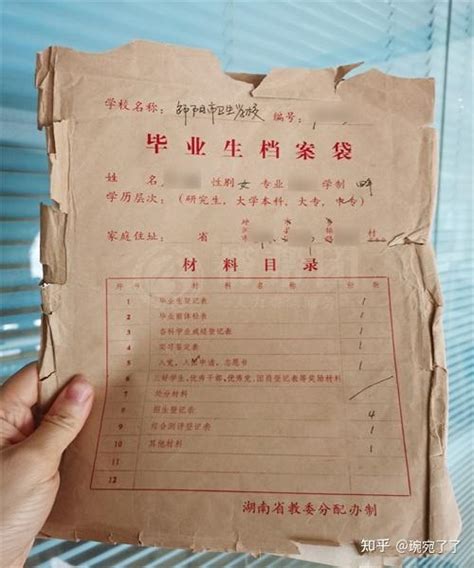 学校名称：邵阳市卫生学校 编号：
毕业生档案袋
姓名 性别 女 专业 学制 四年
学历层次：(研究生、大学本科、大专、中专)
家庭住址： 省 市 县 村
材料目录
序号 材料名称 份数
1 毕业生登记表 1
2 毕业前体检表 1
3 各科学业成绩登记表 1
4 实习鉴定表 1
5 入党、入团申请、志愿书 1
6 三好学生、优秀干部、优秀党、团员登记表等奖励材料
7 处分材料
8 招生登记表 4
9 综合测评登记表 1
10 其他材料 1
11
12
湖南省教委分配办制
知乎 @琬宛了了